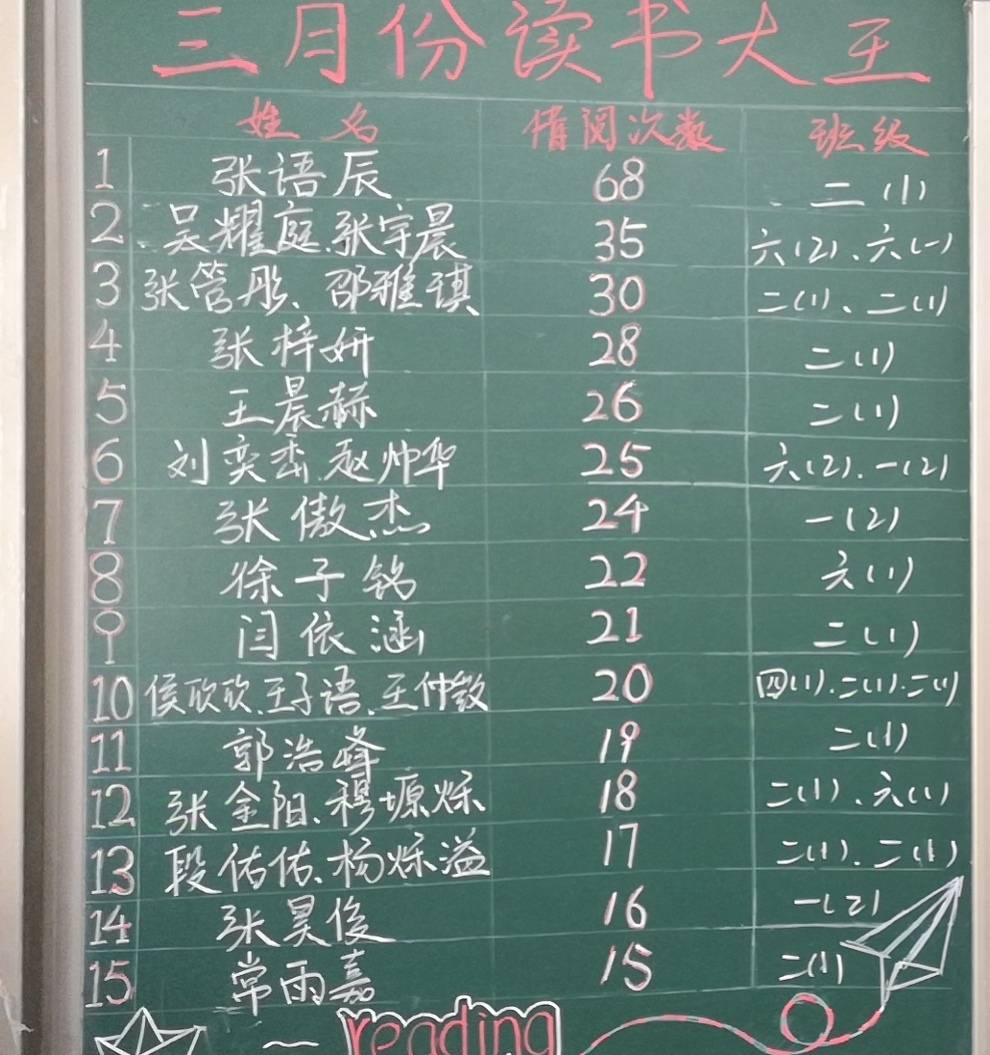 三月份读书大王
姓名 借阅次数 班级
1 张语辰 68 二(1)
2 吴耀庭、张宇晨 35 六(2)、六(一)
3 张管彤、邵雅琪 30 二(1)、二(1)
4 张梓妍 28 二(1)
5 王晨赫 26 二(1)
6 刘奕香、赵帅华 25 六(2)、一(2)
7 张傲杰 24 一(2)
8 徐子铭 22 六(1)
9 闫依涵 21 二(1)
10 侯欣欣、王子语、王仲毅 20 四(1)、二(1)、二(1)
11 郭浩峰 19 二(1)
12 张金阳、穆塬烁 18 二(1)、六(1)
13 段佑佑、杨烁溢 17 二(1)、二(1)
14 张昊俊 16 一(2)
15 常雨嘉 15 二(1)
reading